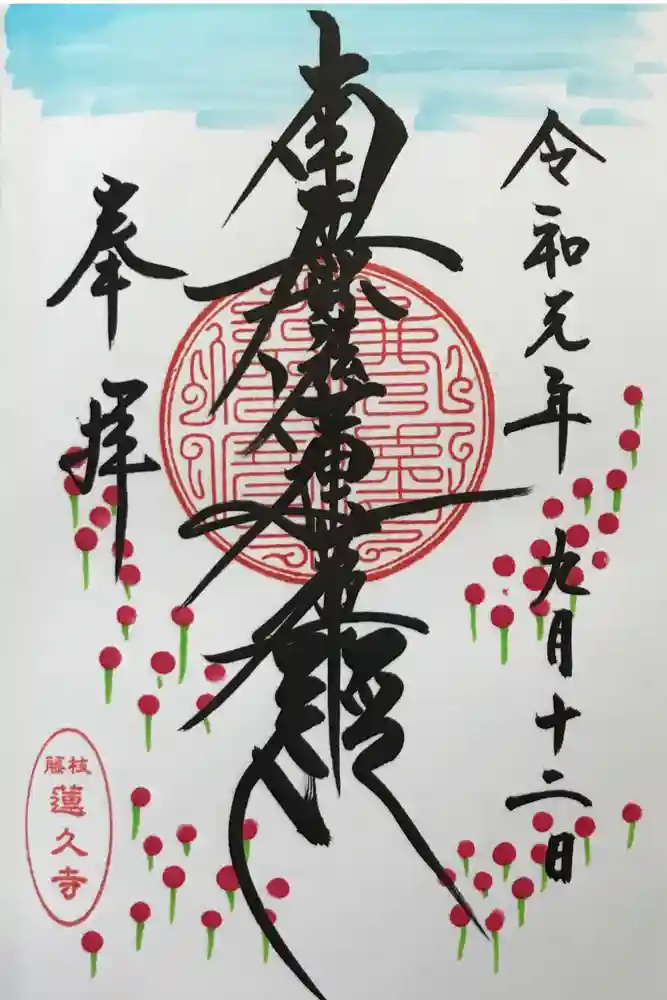 令和元年九月十二日
南無妙法蓮華経
奉拝
藤枝
蓮久寺